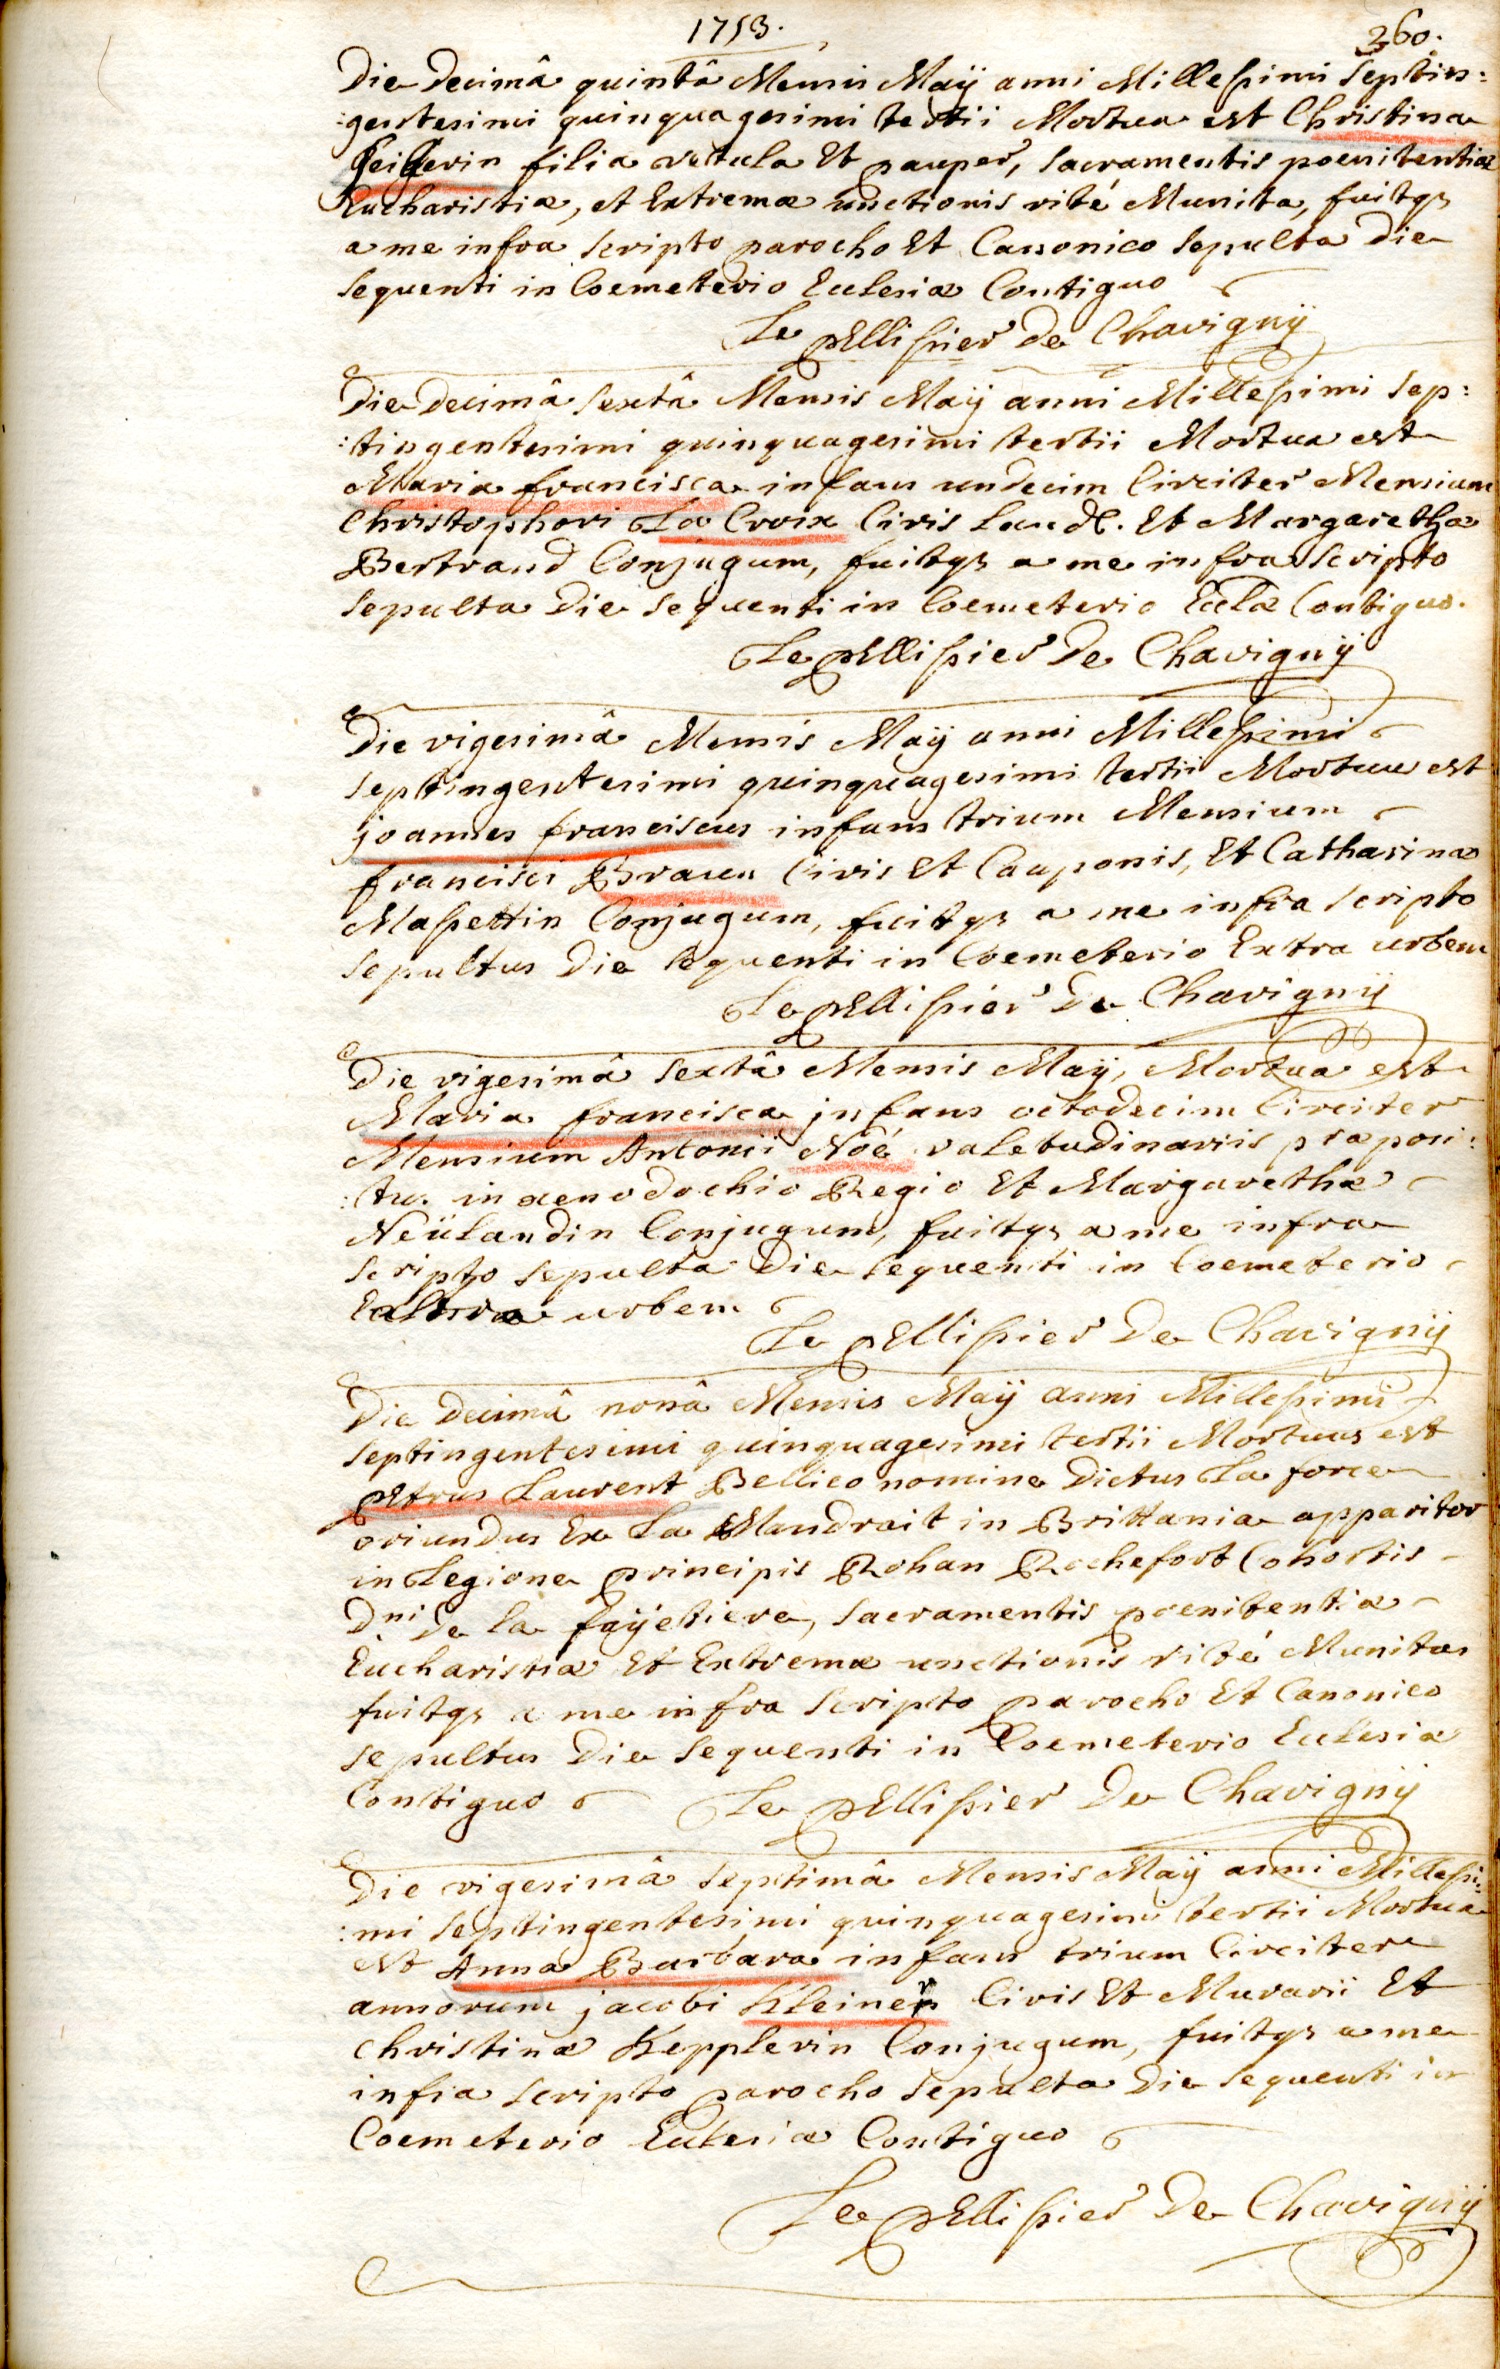 1753.
260.
Die Decimâ quintâ Mensis Maÿ anni Millesimi Septin:
:gentesimi quinquagesimi tertii Mortua est Christina
filia vetula Et pauper, sacramentis poenitentiæ
Eucharistiæ, et Extremæ unctionis rité Munita, fuitqs
a me infra scripto parocho Et Canonico sepulta die
sequenti in Coemeterio Ecclesiæ Contiguo
Le pEllissier De Chavignÿ
Die Decimâ sextâ Mensis Maÿ anni Millesimi sep:
:tingentesimi quinquagesimi tertii Mortua est
Maria francisca infans undecim Circiter Mensium
Christophori La Croix Civis Et Margarethæ
Bertrand Conjugum, fuitqs a me infra scripto
sepulta Die sequenti in Coemeterio Ecclæ Contiguo.
Le pEllissier De Chavignÿ
Die vigesimâ Mensis Maÿ anni Millesimi
septingentesimi quinquagesimi tertii Mortuus est
joannes franciscus infans trium Mensium
francisci Braun Civis Et Cauponis, Et Catharinæ
Massettin Conjugum, fuitqs a me infra scripto
sepultus Die sequenti in Coemeterio Extra urbem
Le pEllissier De Chavignÿ
Die vigesimâ sextâ Mensis Maÿ, Mortua est
Maria francisca jnfans octodecim Circiter
Mensium Antonii Noé valetudinariis præposi:
:tus in xenodochio Regio Et Margarethæ
Neülandin Conjugum, fuitqs a me infra
scripto sepulta Die sequenti in Coemeterio
Extra urbem
Le pEllissier De Chavignÿ
Die Decimâ nonâ Mensis Maÿ anni Millesimi
septingentesimi quinquagesimi tertii Mortuus est
pEtrus Laurent Bellico nomine Dictus La force
oriundus Ex La Mandrait in Brittania apparitor
in Legione principis Rohan Rochefort Cohortis
Dni De la fayëtiere, sacramentis poenitentiæ
Eucharistiæ Et Extremæ unctionis rité Munitus
fuitqs a me infra scripto parocho Et Canonico
sepultus Die sequenti in Coemeterio Ecclesiæ
Contiguo Le pEllissier De Chavignÿ
Die vigesimâ septimâ Mensis Maÿ anni Millesi:
:mi septingentesimi quinquagesimi tertii Mortua
est Anna Barbara infans trium Circiter
annorum jacobi Kleiner Civis Et Murarii Et
Christinæ Kepplerin Conjugum, fuitqs a me
infra scripto parocho sepulta Die sequenti in
Coemeterio Ecclesiæ Contiguo
Le pEllissier De Chavignÿ